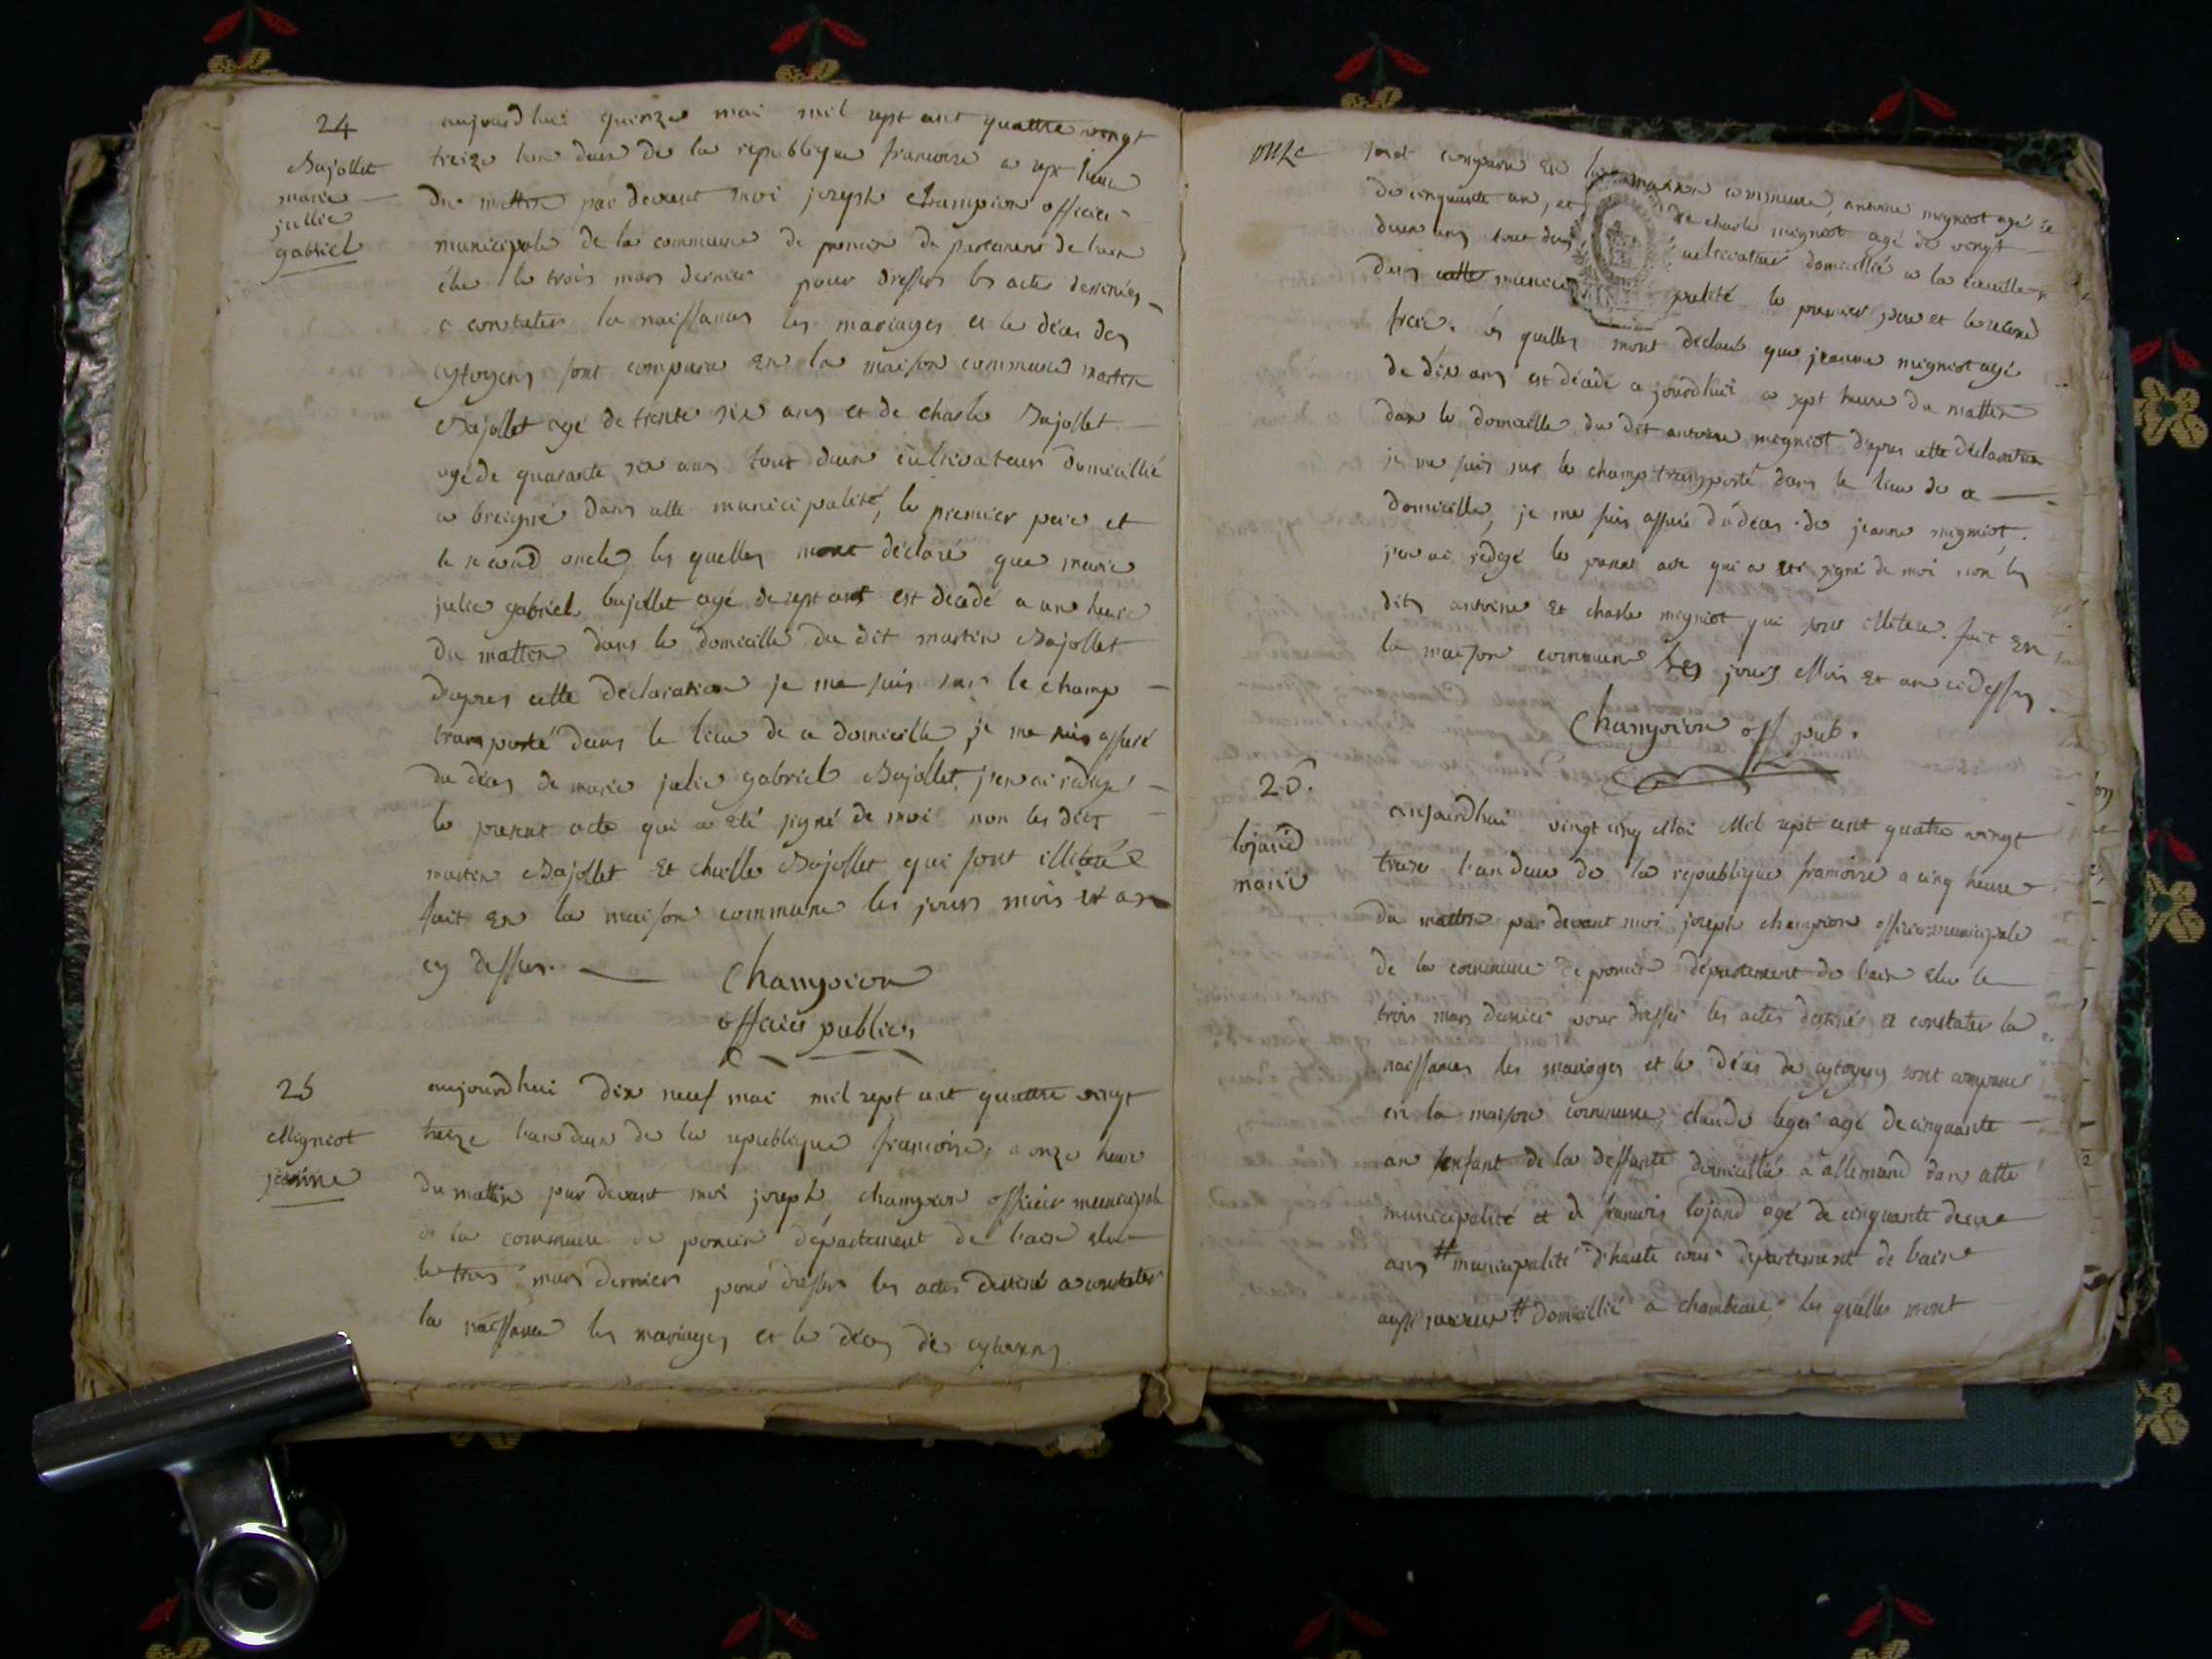 24
Bajollet
marie
jullie
gabriel
aujourd hui quinze mai mil sept cent quattre vingt
treize l'an deux de la republique francoise a sept heure
du mattin par devant moi joseph Champion officier
municipale de la commune de poncin departement de l'ain
élu le trois mars dernier pour dresser les actes destinés
a constater la naissances les mariages et le déces des
cytoyens sont comparu En la maison commune martin
Bajollet agé de trente six ans et de charle Bajollet
agé de quarante six ans tout deux cultivateur domicillié
a breigne dans cette municipalité, le premier pere et
le second oncle, les quelles mont déclaré que marie
julie gabriel bajollet agé de sept ans est décédé a une heure
du mattin dans le domicille du dit martin Bajollet
dapres cette déclaration je me suis sur le champ
transporté dans le lieu de ce domicille, je me suis assuré
du déces de marie julie gabriel Bajollet, j'en ai rédigé
le present acte qui a eté signé de moi non les dits
martin Bajollet Et charlle Bajollet qui sont illiteré
fait En la maison commune les jours mois et an
cy dessus. Champion
officier public
25
Migniot
jeanne
aujourdhui dix neuf mai mil sept cent quattre vingt
treize l'an deux de la republique francoise, a onze heure
du mattin par devant moi joseph champion officier municipale
de la commune de poncin département de l'ain elu
le trois mars dernier pour dresser les actes destiné a constater
la naissance les mariages et le déces des cytoyens
onze
sont comparu En la maison commune, antoine migniot agé de
de cinquante an, et de charle migniot agé de vingt
deux ans tout deux cultivateur domicillié a la
dans cette municipalité le premier pere et le second
frere. les quelles mont déclaré que jeanne migniot agé
de dix ans est décédé a jourdhui a sept heure du mattin
dans le domicille du dit antoine migniot dapres cette déclaration
je me suis sur le champ transporté dans le lieu de ce
domicille, je me suis assuré du déces de jeanne migniot,
j'en ai rédigé le present acte qui a eté signé de moi non les
dits antoine Et charle migniot qui sont illiteré. fait En
la maison commune les jours Mois Et an ci dessus.
Champion off pub.
26.
lojand
marie
aujourdhui vingt cinq Mai Mil sept cent quatre vingt
treize l'an deux de la republique francoise a cinq heure
du mattin par devant moi joseph champion officier municipale
de la commune de poncin département de l'ain elu le
trois mars dernier pour dresser les actes destinés a constater la
naissances les mariages et le déces des cytoyens sont comparu
en la maison commune, claude leger agé de cinquante
an de la deffunte domicillié a allemand dans cette
municipalité et de francois lojand agé de cinquante deux
ans # municipalité d'haute cour departement de l'ain
aussi # domicillié a chambeau, les quelles mont